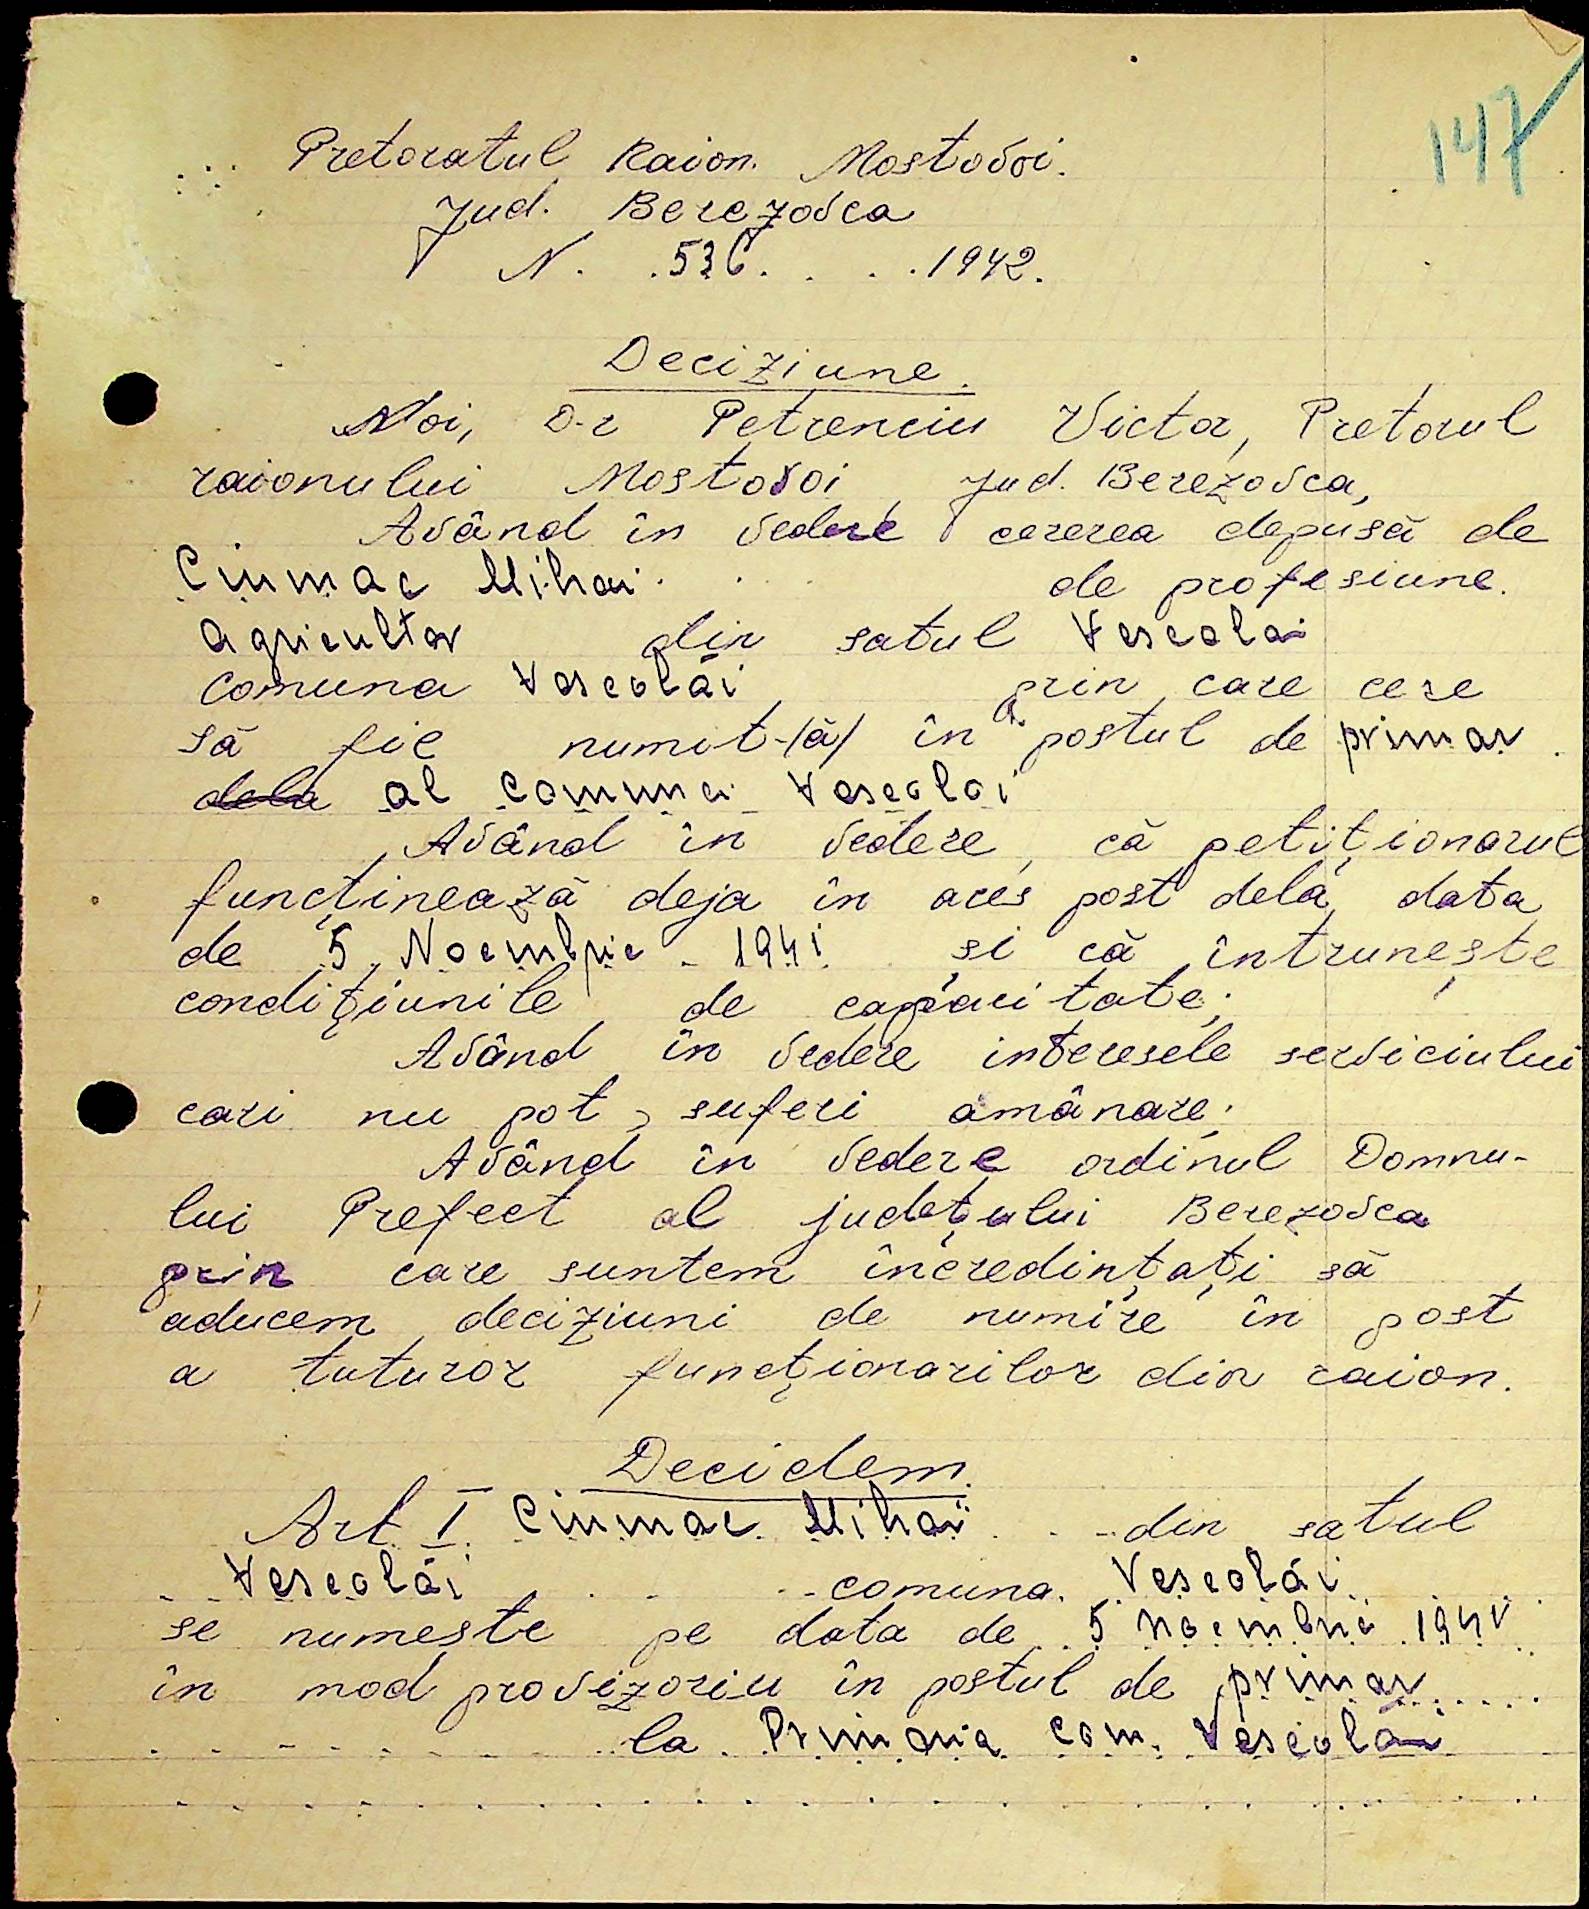 147
Pretoratul Raion. Mostovoi.
Jud. Berezovca
N. . 536. . . . 1942.
Deciziune.
Noi, D-r Petrenciu Victor, Pretorul
raionului Mostovoi, jud. Berezovca,
Având în vedere cererea depusă de
Ciumac Mihai . . de profesiune.
agricultor din satul Veseolai
comuna Veseolăi prin care cere
să fie numit-/ă/ în postul de primar .
dela al comunei Veseoloi
Având în vedere, că petiționarul
funcținează deja în aces post dela data
de 5 Noembrie - 1941 și că întrunește
condițiunile de capacitate;
Având în vedere interesele serviciului
cari nu pot suferi amânare;
Având în vedere ordinul Domnu-
lui Prefect al județului Berezovca
prin care suntem încredințați să
aducem deciziuni de numire în post
a tuturor funcționarilor din raion.
Decidem.
Art. I. Ciumac Mihai . . - din satul
Veseolăi . . . . comuna. Veseolăi
se numește pe data de 5 Noembrie 1941
în mod provizoriu în postul de primar . . . . .
la Primăria com. Veseolăi